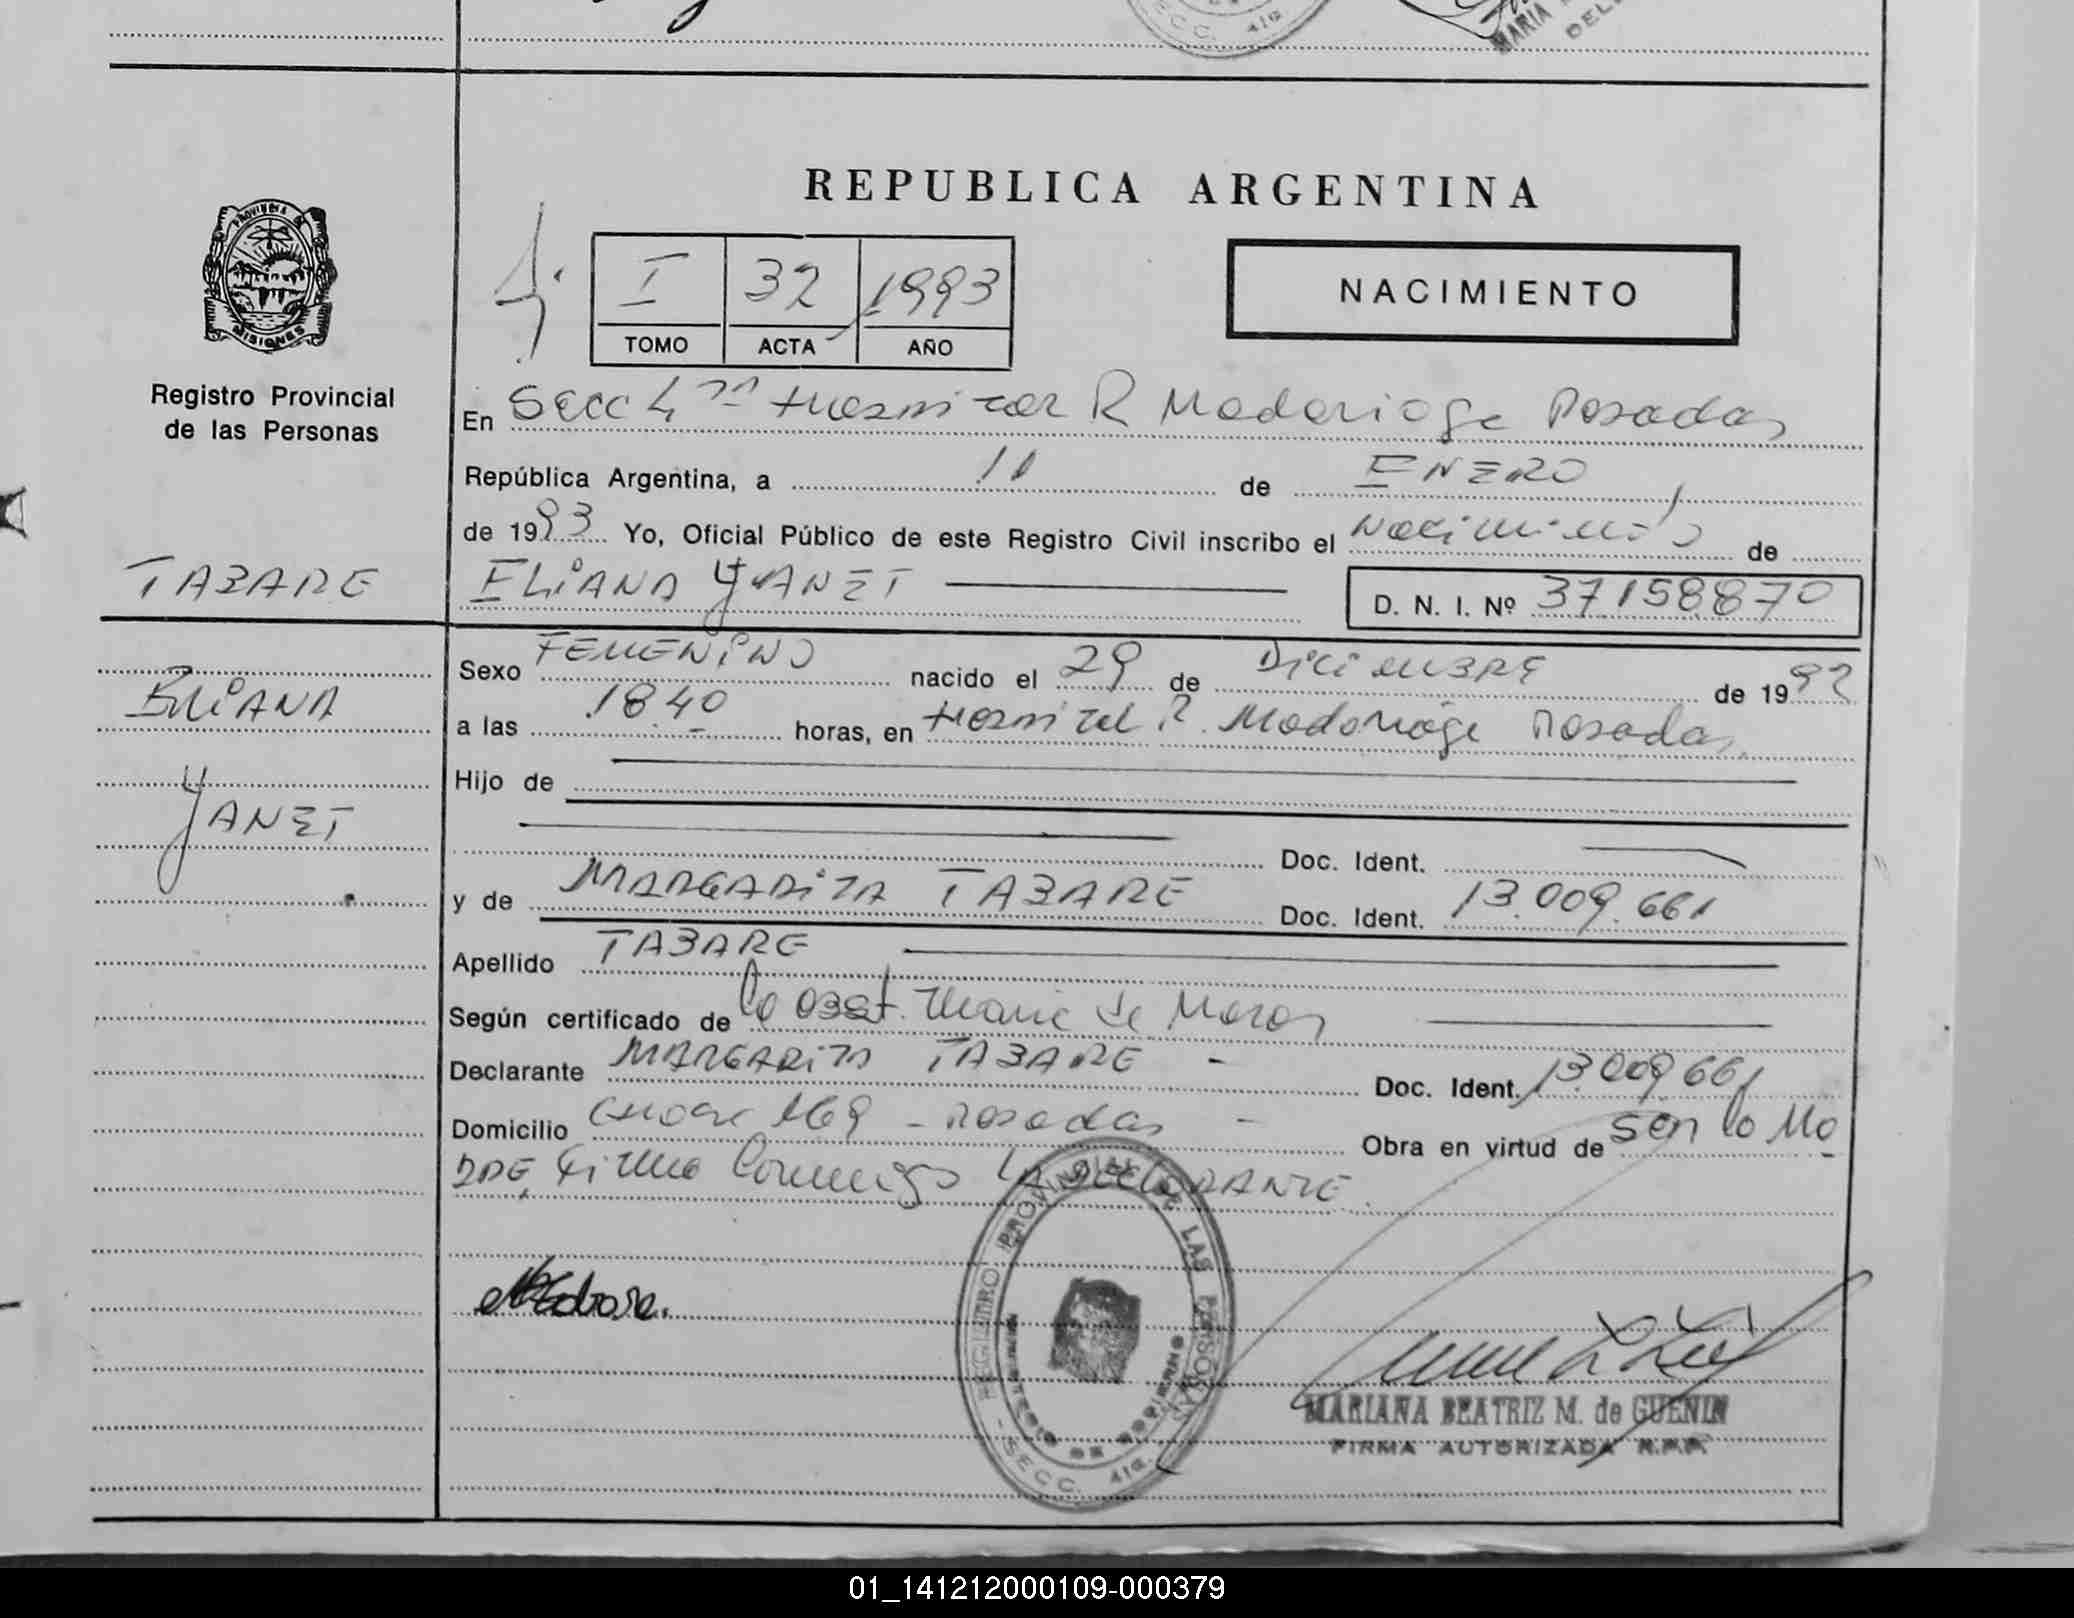 MARIA
DEL
SECC. 4ta
REPUBLICA ARGENTINA
PROVINCIA DE
MISIONES
I 32 1993
TOMO ACTA AÑO
NACIMIENTO
Registro Provincial
de las Personas
En Secc 4ta Hospital R Madariaga Posadas
República Argentina, a 11 de ENERO
de 1993 Yo, Oficial Público de este Registro Civil inscribo el Nacimiento de
TABARE ELIANA YANET D. N. I. Nº 37158870
Sexo FEMENINO nacido el 29 de Diciembre de 1992
ELIANA
a las 18.40 horas, en Hospital R. Madariaga Posadas
Hijo de
YANET
Doc. Ident.
y de MARGARITA TABARE Doc. Ident. 13.009.661
Apellido TABARE
Según certificado de la Obst. Maria de
Declarante MARGARITA TABARE - Doc. Ident. 13.009.661
Domicilio 169 - Posadas - Obra en virtud de ser la Ma
DRE, Firma Conmigo LA DECLARANTE.
REGISTRO PROVINCIAL DE LAS PERSONAS
SECC. 4ta.
MARIANA BEATRIZ M. de GUENIN
FIRMA AUTORIZADA R.P.P.
01_141212000109-000379